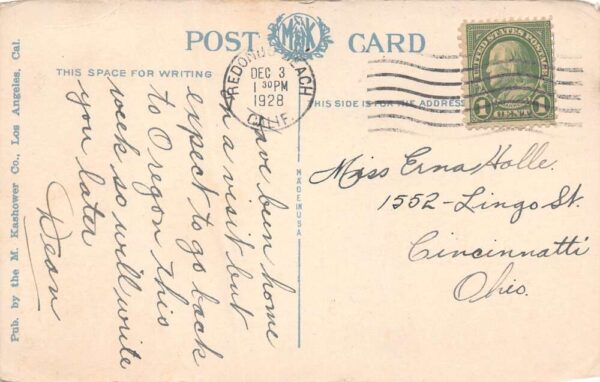 POST CARD
MK
THIS SPACE FOR WRITING
THIS SIDE IS FOR THE ADDRESS
REDONDO BEACH
DEC 3
1 30 PM
1928
CALIF.
UNITED STATES POSTAGE
1 1
CENT
Have been home
on a visit but
expect to go back
to Oregon this
week so will write
you later
Dean
Miss Erna Holle.
1552-Lingo St.
Cincinnatti
Ohio.
MADE IN USA
Pub. by the M. Kashower Co., Los Angeles, Cal.